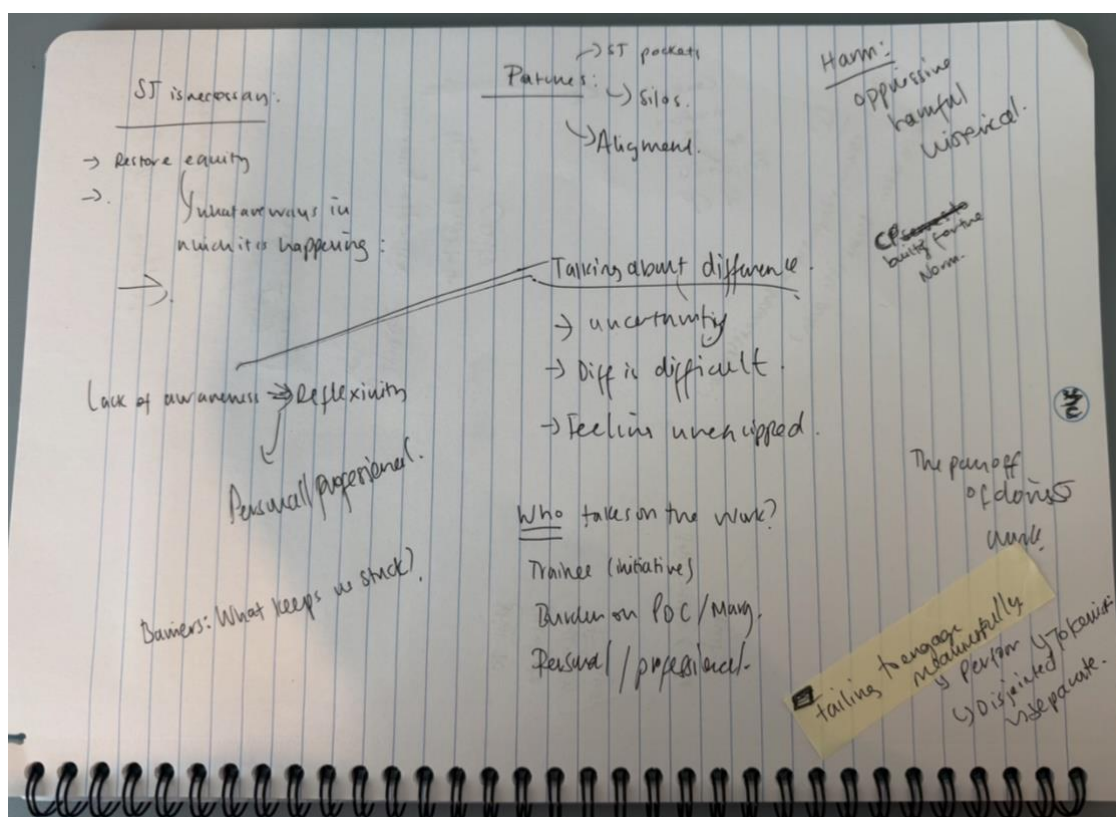 ST is necessary:
→ Restore equity
→.
↳ what are ways in
which it is happening:
→.
Lack of awareness → Reflexivity
Personal/professional.
Barriers: What keeps us stuck?
→ ST pockets
Patches: ↳ Silos.
↳ Aligment.
Talking about difference.
→ uncertainty
→ Diff is difficult.
→ Feeling unequipped.
Who takes on the work?
Trainee (initiatives)
Burden on POC/Marg.
Personal/professional.
Harm:
oppressive
harmful
historical.
CP
built for the
Norm.
The
of doing
work
failing to engage
meaningfully
↳ Tokenist:
↳ Disjointed
↳ separate.